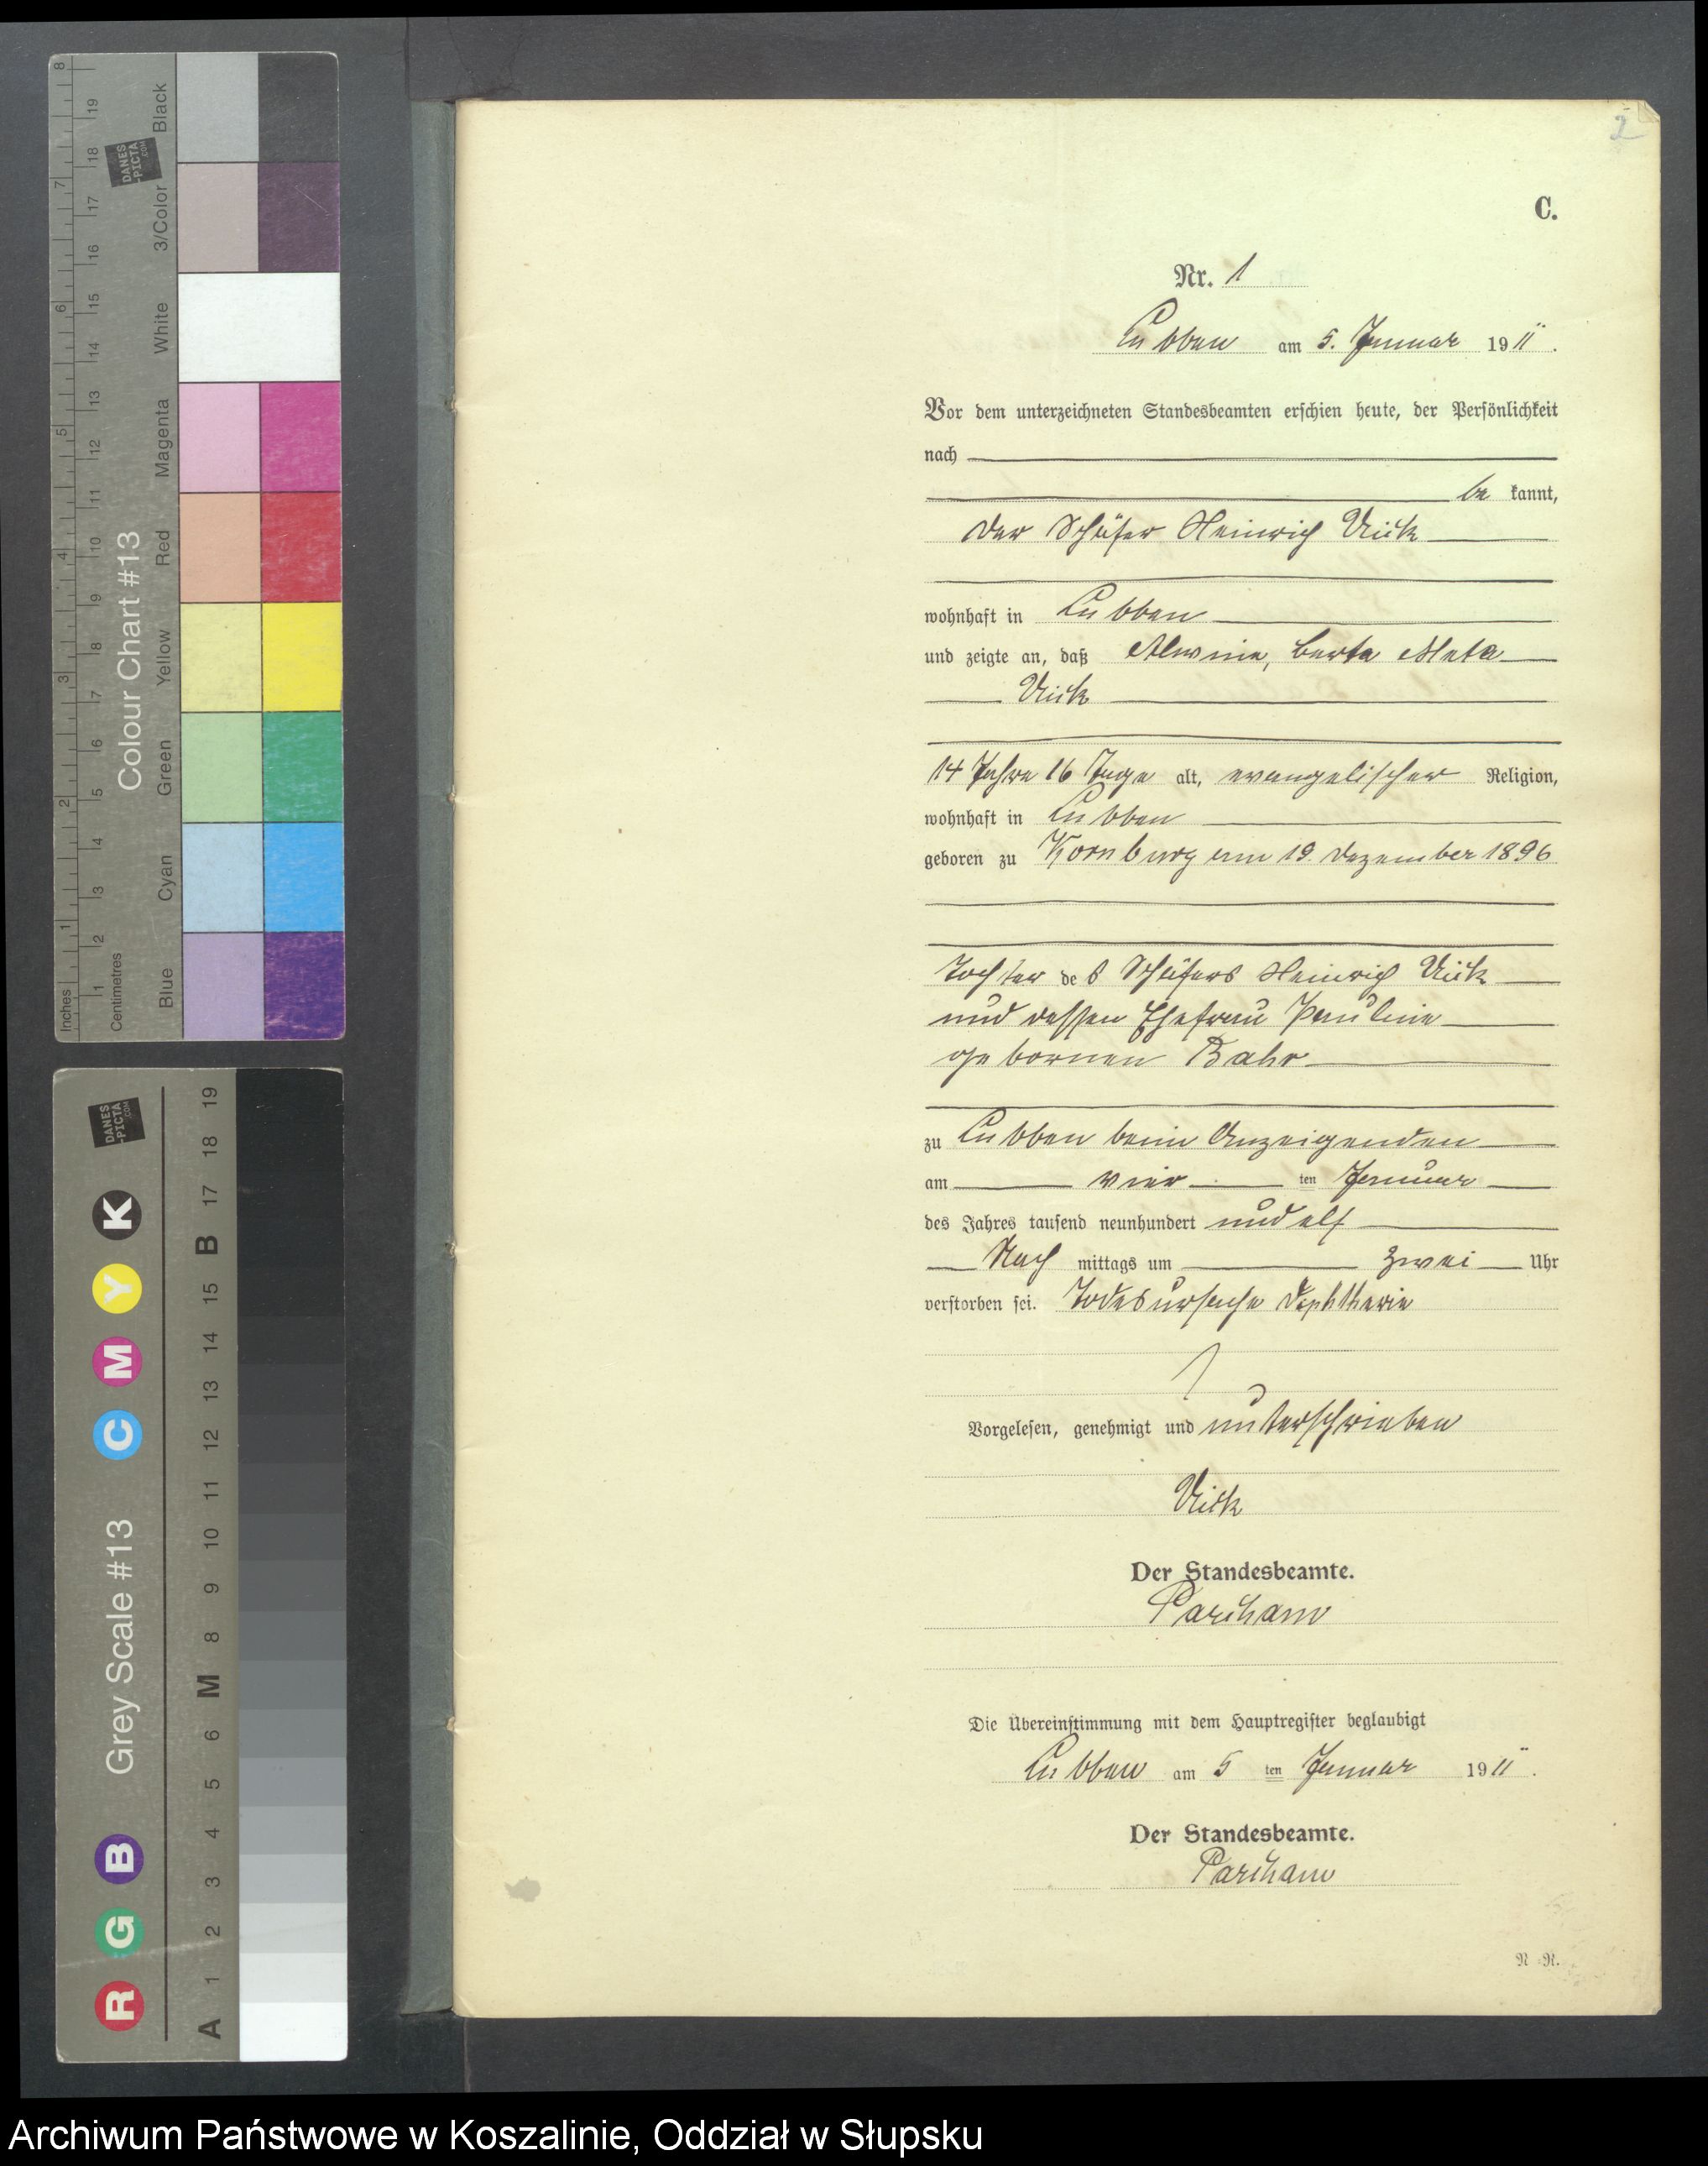 2
C.
Nr. 1
Lubben am 5. Januar 1911.
Vor dem unterzeichneten Standesbeamten erschien heute, der Persönlichkeit
nach
be kannt,
der Schäfer Heinrich Vick
wohnhaft in Lubben
und zeigte an, daß Alwine, Berta Meta
Vick
14 Jahre 16 Tage alt, evangelischer Religion,
wohnhaft in Lubben
geboren zu Kornburg am 19. Dezember 1896
Tochter des Schäfers Heinrich Vick
und dessen Ehefrau Pauline
gebornen Bahr
zu Lubben beim Anzeigenden
am vier ten Januar
des Jahres tausend neunhundert und elf
Nach mittags um zwei Uhr
verstorben sei. Todesursache Diphtherie
Vorgelesen, genehmigt und unterschrieben
Vick
Der Standesbeamte.
Die Übereinstimmung mit dem Hauptregister beglaubigt
Lubben am 5 ten Januar 1911.
Der Standesbeamte.
Inches
1 2 3 4 5 6 7 8
Centimetres
1 2 3 4 5 6 7 8 9 10 11 12 13 15 14 16 17 18 19
Colour Chart #13
Blue Cyan Green Yellow Red Magenta White 3/Color Black
DANES
-PICTA
.COM
Grey Scale #13
R G B C M Y K
A 1 2 3 4 5 6 M 8 9 10 11 12 13 14 15 B 17 18 19
DANES
-PICTA
.COM
Archiwum Państwowe w Koszalinie, Oddział w Słupsku